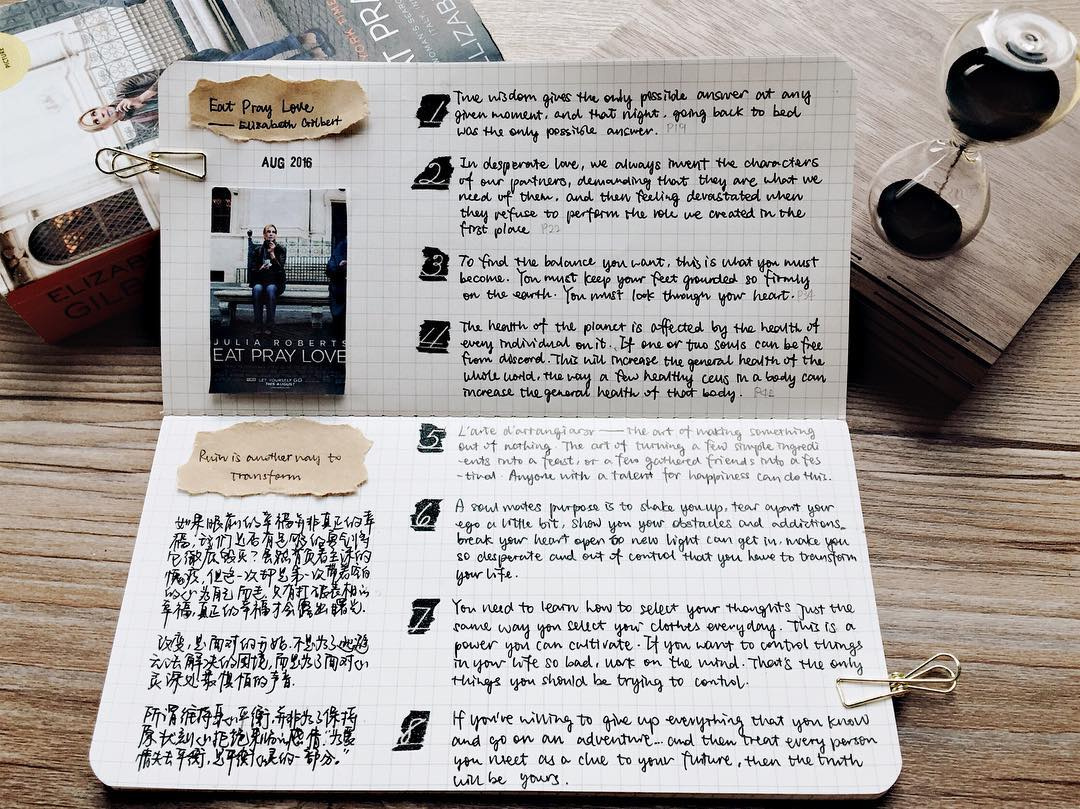 PICTURE
YORK TIME
WOMAN'S SEARC
ITALY, IN
ELIZAB
AT PRA
ELIZAB
GILB
Eat Pray Love
— Elizabeth Gilbert
AUG 2016
JULIA ROBERTS
EAT PRAY LOVE
LET YOURSELF GO
THIS AUGUST
1 True wisdom gives the only possible answer at any
given moment, and that night, going back to bed
was the only possible answer. P19
2 In desperate love, we always invent the characters
of our partners, demanding that they are what we
need of them, and then feeling devastated when
they refuse to perform the role we created in the
first place P22
3 To find the balance you want, this is what you must
become. You must keep your feet grounded so firmly
on the earth. You must look through your heart. P34
4 The health of the planet is affected by the health of
every individual on it. If one or two souls can be free
from discord. This will increase the general health of the
whole world, the way a few healthy cells in a body can
increase the general health of that body.
Ruin is another way to
transform
如果眼前的幸福并非真正的幸
福，我们是否有足够的勇气将
它徹底毁灭？会很有负着主体的
慌张，但这一次却是第一次带着
的心为自己而走，只有打破表相的
幸福，真正的幸福才会露出曙光。
改变，是面对的开始，不是为了逃避
无法解决的困境，而是为了面对心
灵深处最惧怕的声音。
所谓维持身心平衡，并非为了保持
原状刻心拒绝别的感情，"为爱
情失去平衡，是平衡人生的一部分。"
5 L'arte d'arrangiarsi — the art of making something
out of nothing. The art of turning a few simple ingredi
-ents into a feast, or a few gathered friends into a fes
-tival. Anyone with a talent for happiness can do this.
6 A soul mates purpose is to shake you up, tear apart your
ego a little bit, show you your obstacles and addictions,
break your heart open so new light can get in, make you
so desperate and out of control that you have to transform
your life.
7 You need to learn how to select your thoughts just the
same way you select your clothes everyday. This is a
power you can cultivate. If you want to control things
in your life so bad, work on the mind. That's the only
things you should be trying to control.
8 If you're willing to give up everything that you know
and go on an adventure... and then treat every person
you meet as a clue to your future, then the truth
will be yours.